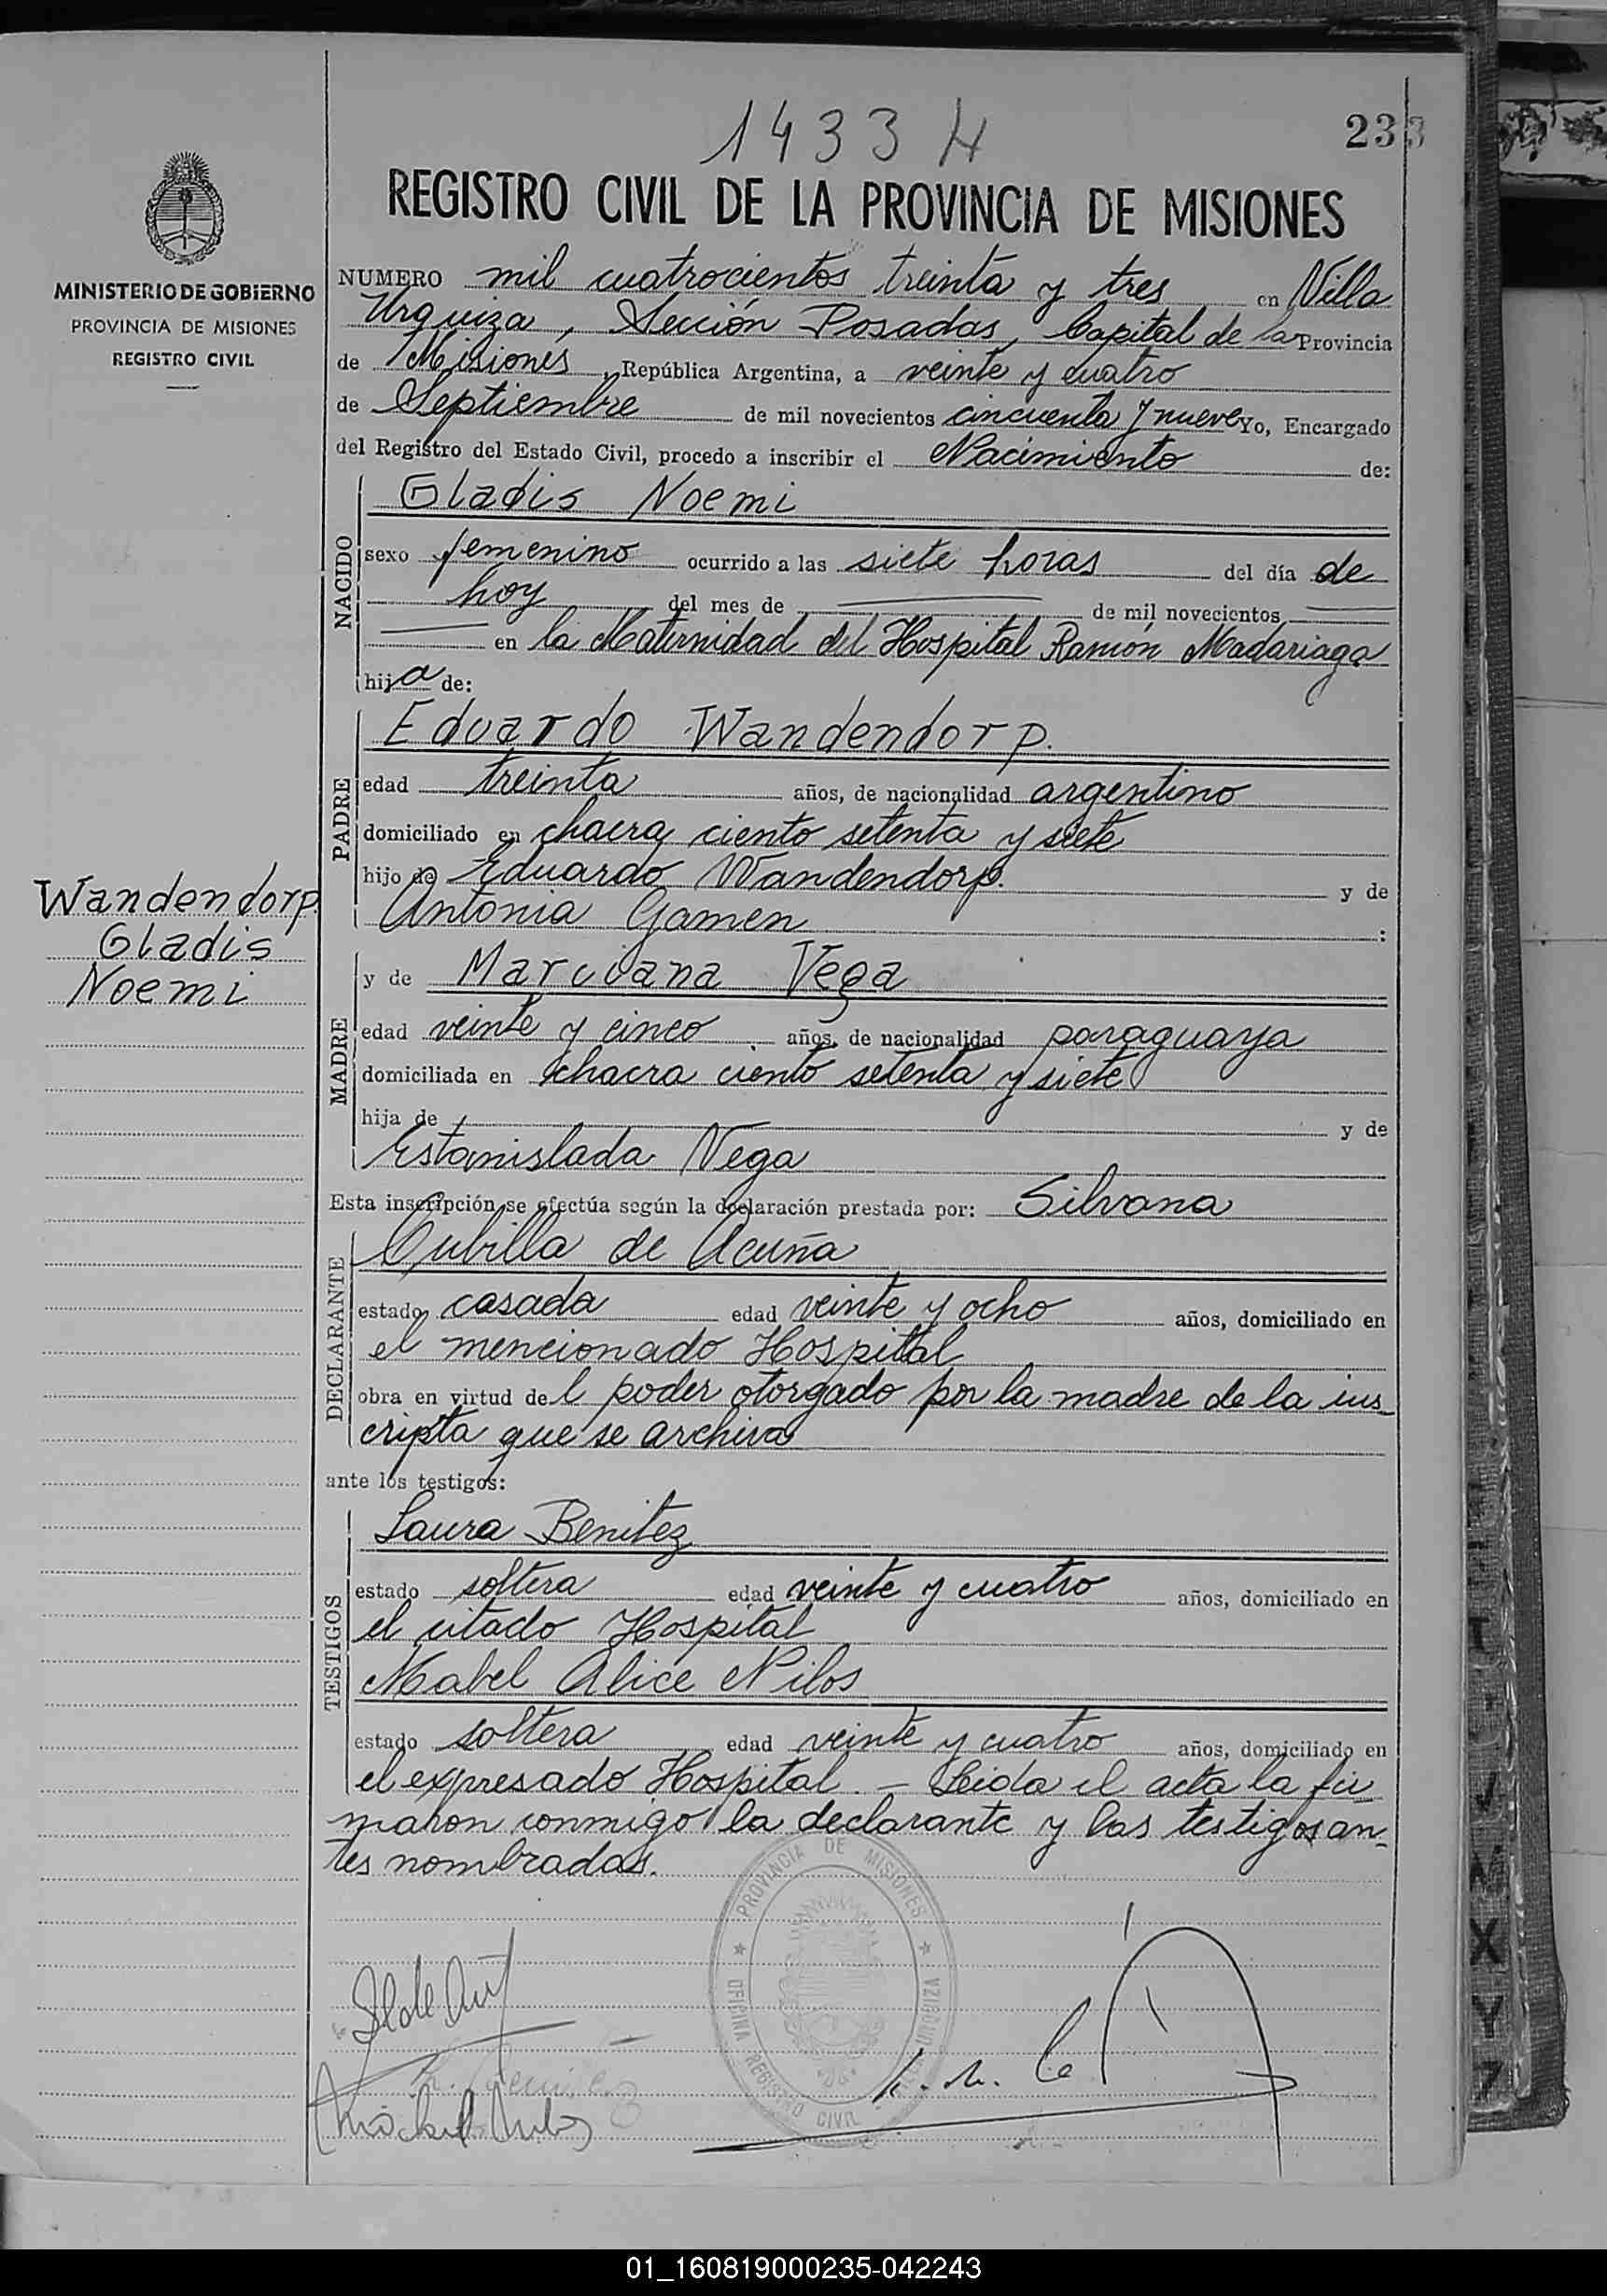 1433 H
233
MINISTERIO DE GOBIERNO
PROVINCIA DE MISIONES
REGISTRO CIVIL
REGISTRO CIVIL DE LA PROVINCIA DE MISIONES
NUMERO mil cuatrocientos treinta y tres en Villa
Urquiza, Sección Posadas, Capital de la Provincia
de Misiones, República Argentina, a veinte y cuatro
de Septiembre de mil novecientos cincuenta y nueve Yo, Encargado
del Registro del Estado Civil, procedo a inscribir el Nacimiento de:
NACIDO
Gladis Noemi
sexo femenino ocurrido a las siete horas del día de
hoy del mes de de mil novecientos
en la Maternidad del Hospital Ramón Madariaga
hija de:
PADRE
Eduardo Wandendorp.
edad treinta años, de nacionalidad argentino
domiciliado en chacra ciento setenta y siete
hijo de Eduardo Wandendorp. y de
Antonia Gamen :
Wandendorp.
Gladis
Noemi
MADRE
y de Marciana Vega
edad veinte y cinco años, de nacionalidad paraguaya
domiciliada en chacra ciento setenta y siete
hija de y de
Estanislada Vega
Esta inscripción se efectúa según la declaración prestada por: Silvana
DECLARANTE
Cubilla de Acuña
estado casada edad veinte y ocho años, domiciliado en
el mencionado Hospital
obra en virtud del poder otorgado por la madre de la ins-
cripta que se archiva
ante los testigos:
TESTIGOS
Laura Benitez
estado soltera edad veinte y cuatro años, domiciliado en
el citado Hospital
Mabel Alice Nilos
estado soltera edad veinte y cuatro años, domiciliado en
el expresado Hospital. - Leida el acta la fir-
maron conmigo la declarante y las testigos an-
tes nombradas.
PROVINCIA DE MISIONES
OFICINA REGISTRO CIVIL URQUIZA
01_160819000235-042243